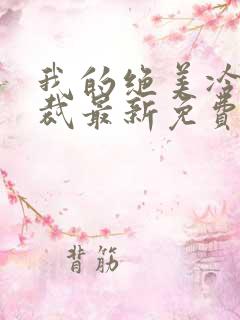 我的绝美冷
裁最新免费
背筋